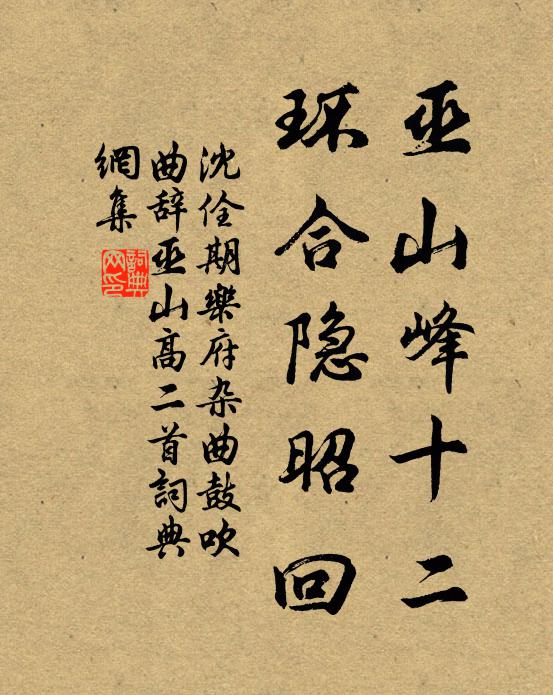 巫山峰十二
环合隐昭回
沈佺期樂府杂曲鼓吹
曲辞巫山高二首詞典
網集
詞典
网印